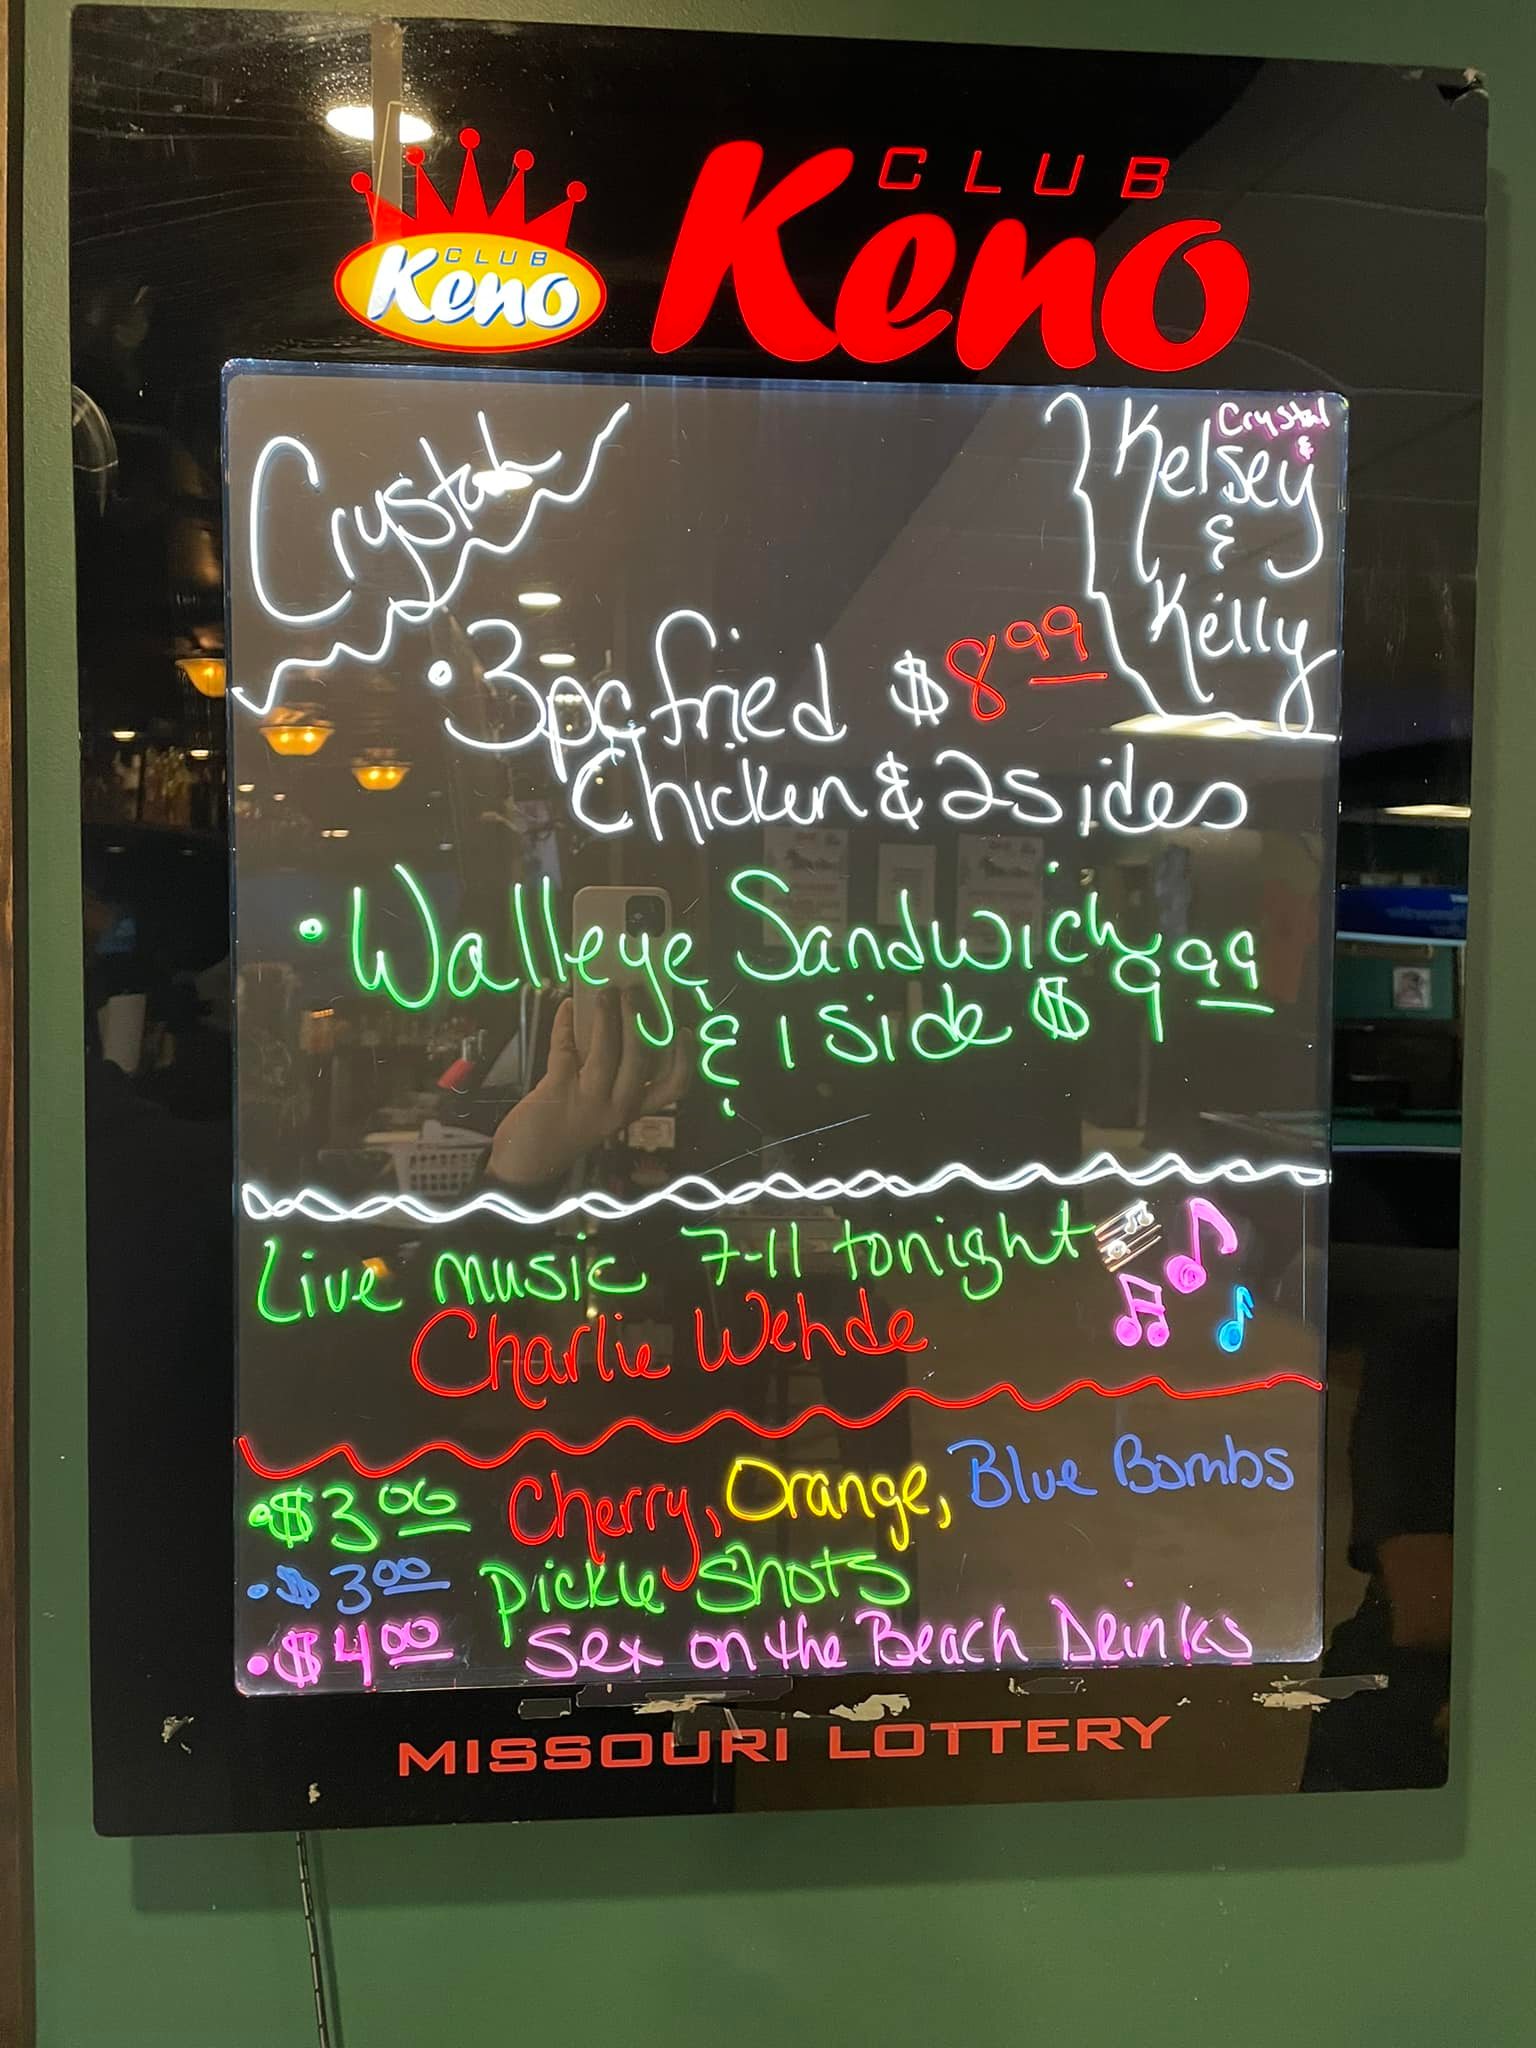 CLUB
Keno
CLUB
Keno
Crystal
Crystal
&
Kelsey
&
Kelly
• 3pc fried $8.99
Chicken & 2 sides
• Walleye Sandwich
& 1 side $9.99
Live music 7-11 tonight
Charlie Wehde
• $3.00 Cherry, Orange, Blue Bombs
• $3.00 pickle shots
• $4.00 Sex on the Beach Drinks
MISSOURI LOTTERY